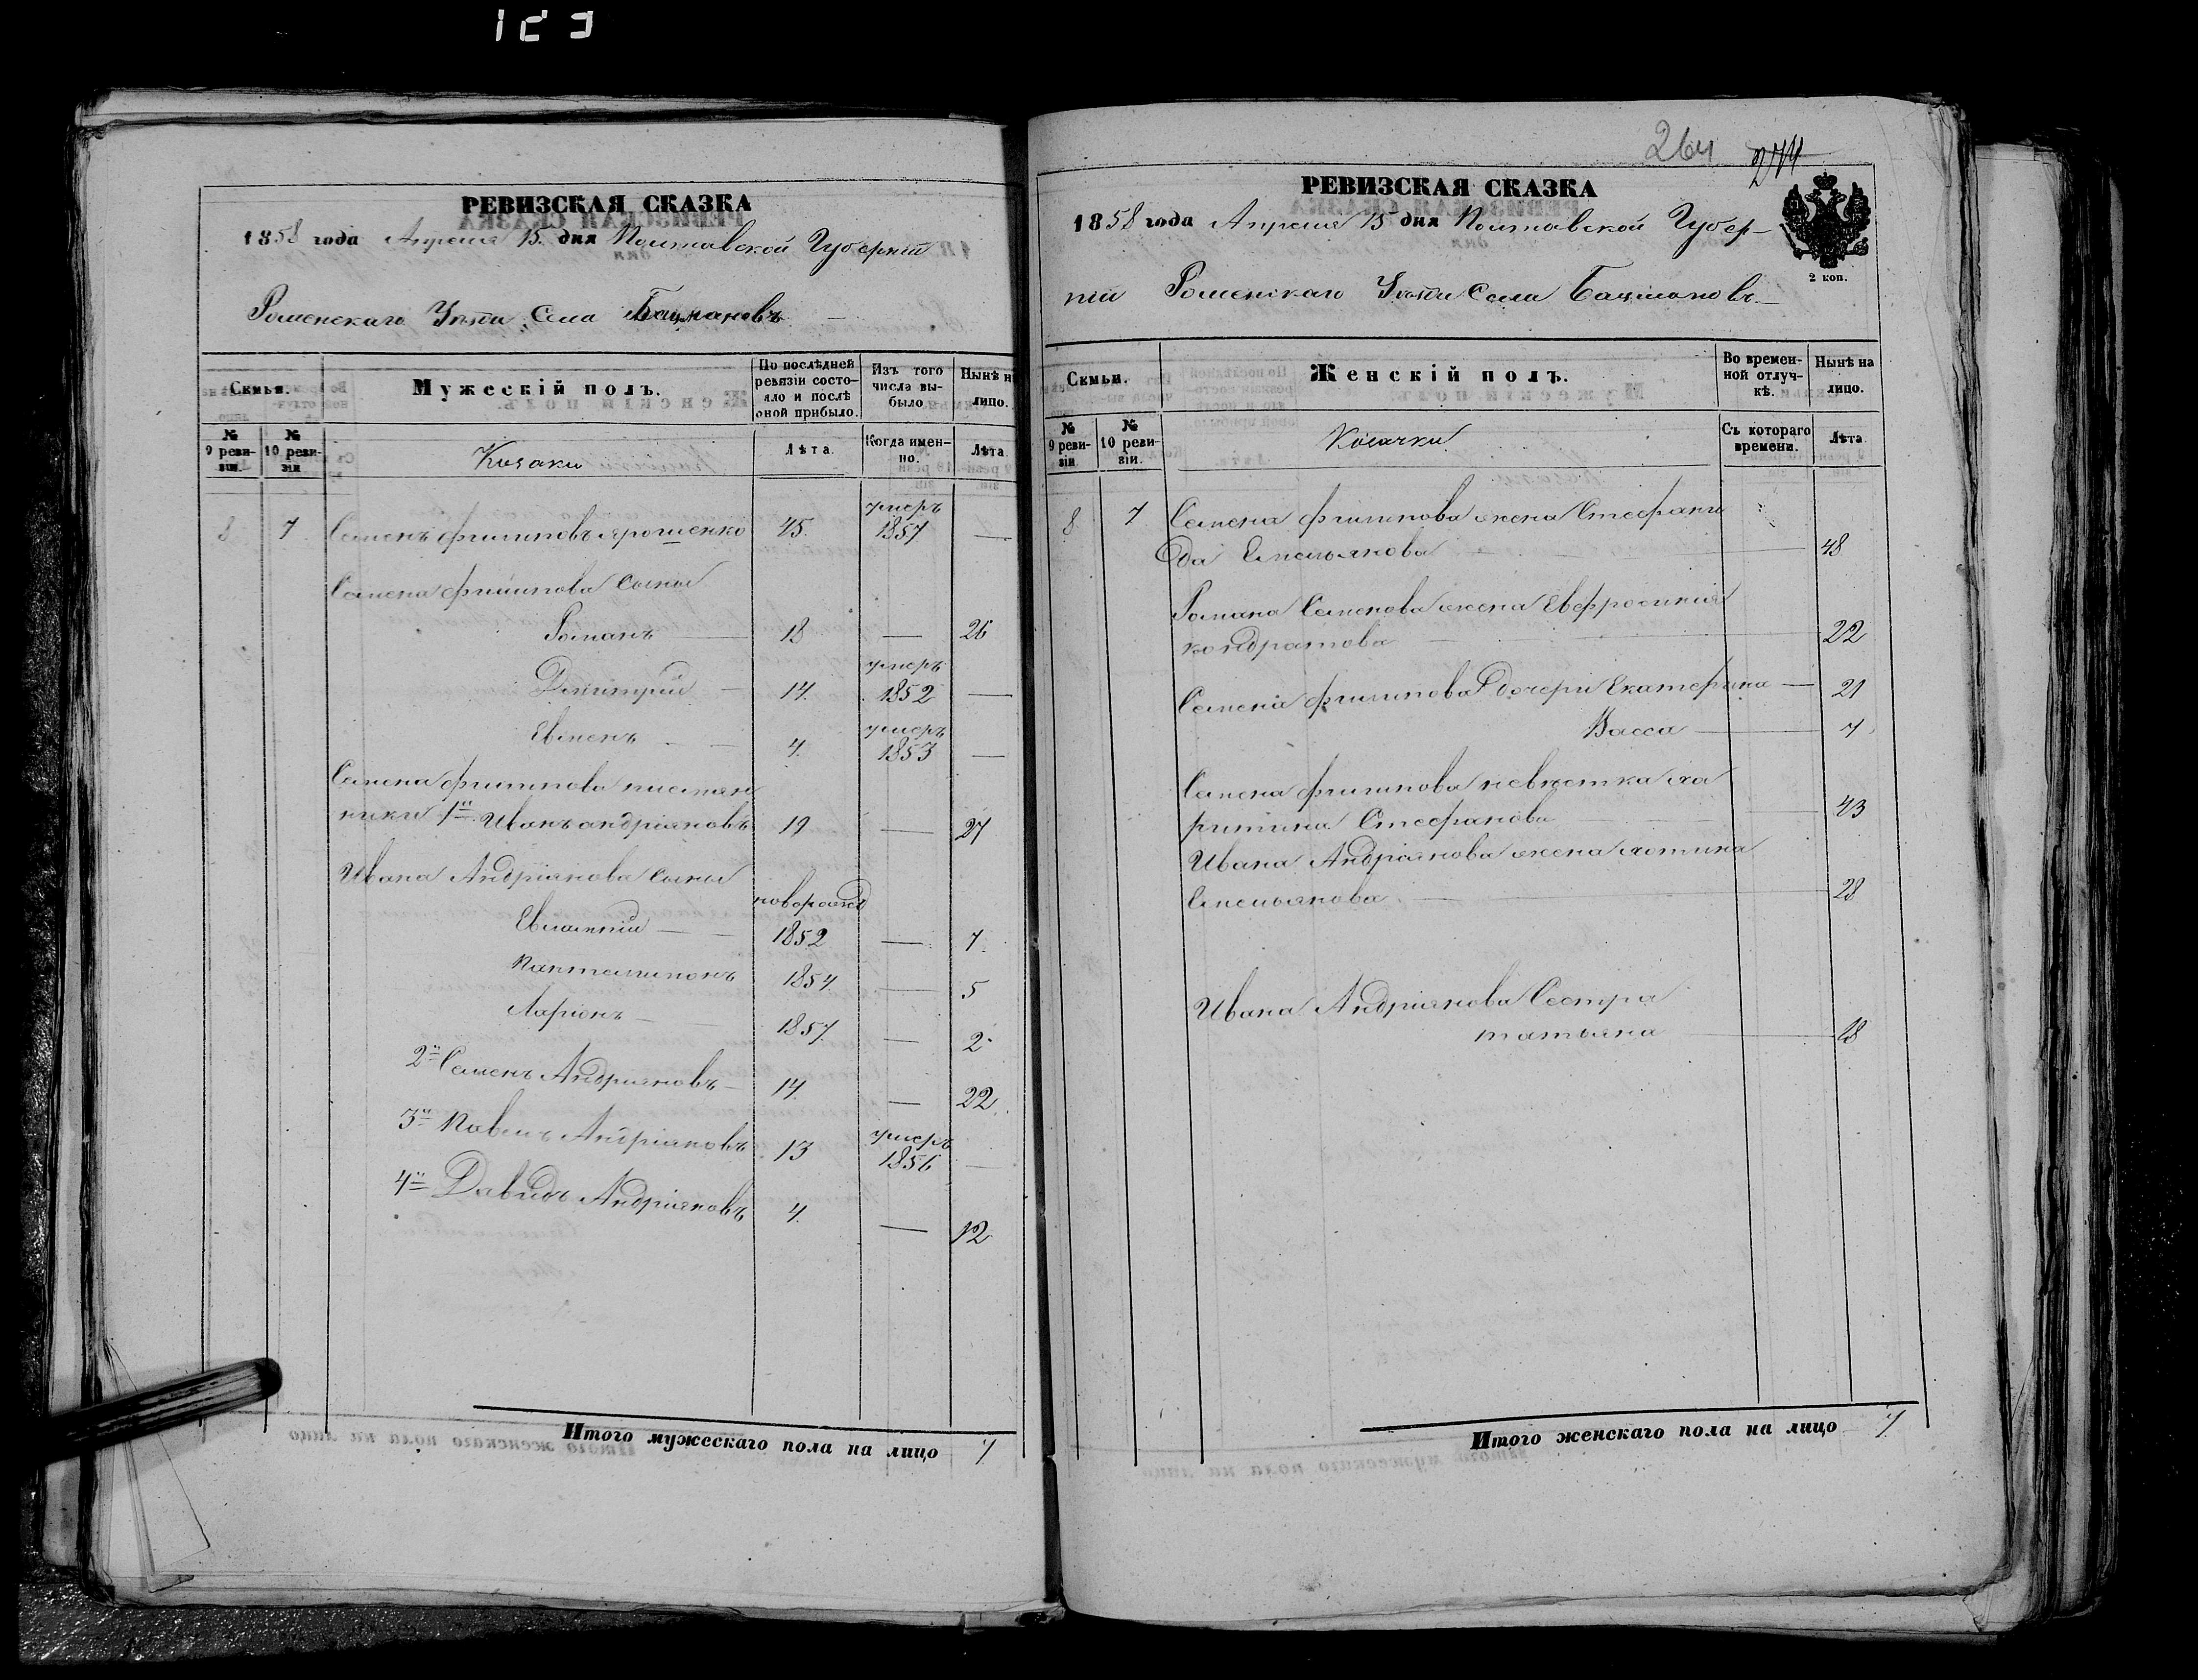 264 274
РЕВИЗСКАЯ СКАЗКА
1858 года Апреля 15 дня Полтавской Губерніи
Роменскаго Уѣзда Села Бацмановъ
Семьи.
Мужескій полъ.
По послѣдней ревизіи состояло и послѣ оной прибыло.
Изъ того числа выбыло.
Нынѣ на лицо.
№ 9 ревизіи.
№ 10 ревизіи
Козаки
Лѣта.
Когда именно.
Лѣта.
8 7 Семенъ Филиповъ Ярошенко 45. умеръ 1857 —
Семена Филипова сыны
Романъ — 18 — 26
Дмитрій — 14. умеръ 1852 —
Евменъ — 4. умеръ 1853 —
Семена Филипова племян
ники 1й Иванъ Андріяновъ 19 — 27
Ивана Андріянова сыны
новорожд
Евлампій — 1852 — 7.
Пантелимонъ 1854. — 5
Ларіонъ — 1857. — 2
2й Семенъ Андріяновъ — 14. — 22
3й Павелъ Андріяновъ 13 умеръ 1856 —
4й Давидъ Андріяновъ 4. — 12
Итого мужескаго пола на лицо 7
РЕВИЗСКАЯ СКАЗКА
1858 года Апреля 15 дня Полтавской Губер-
ніи Роменскаго Уѣзда Села Бацмановъ
2 коп.
Семьи.
Женскій полъ.
Во временной отлучкѣ.
Нынѣ на лицо.
№ 9 ревизіи
№ 10 ревизіи.
Козачки
Съ котораго времени.
Лѣта
8 7 Семена Филипова жена Стефани
да Емельянова — 48
Романа Семенова жена Евфросинія
Кондратова — 22
Семена Филипова дочери Екатерина — 21
Васса — 7
Семена Филипова невѣстка Ха
ритина Стефанова — 43
Ивана Андріянова жена Хотина
Емельянова — 28
Ивана Андріянова Сестра
Татьяна — 18
Итого женскаго пола на лицо 7